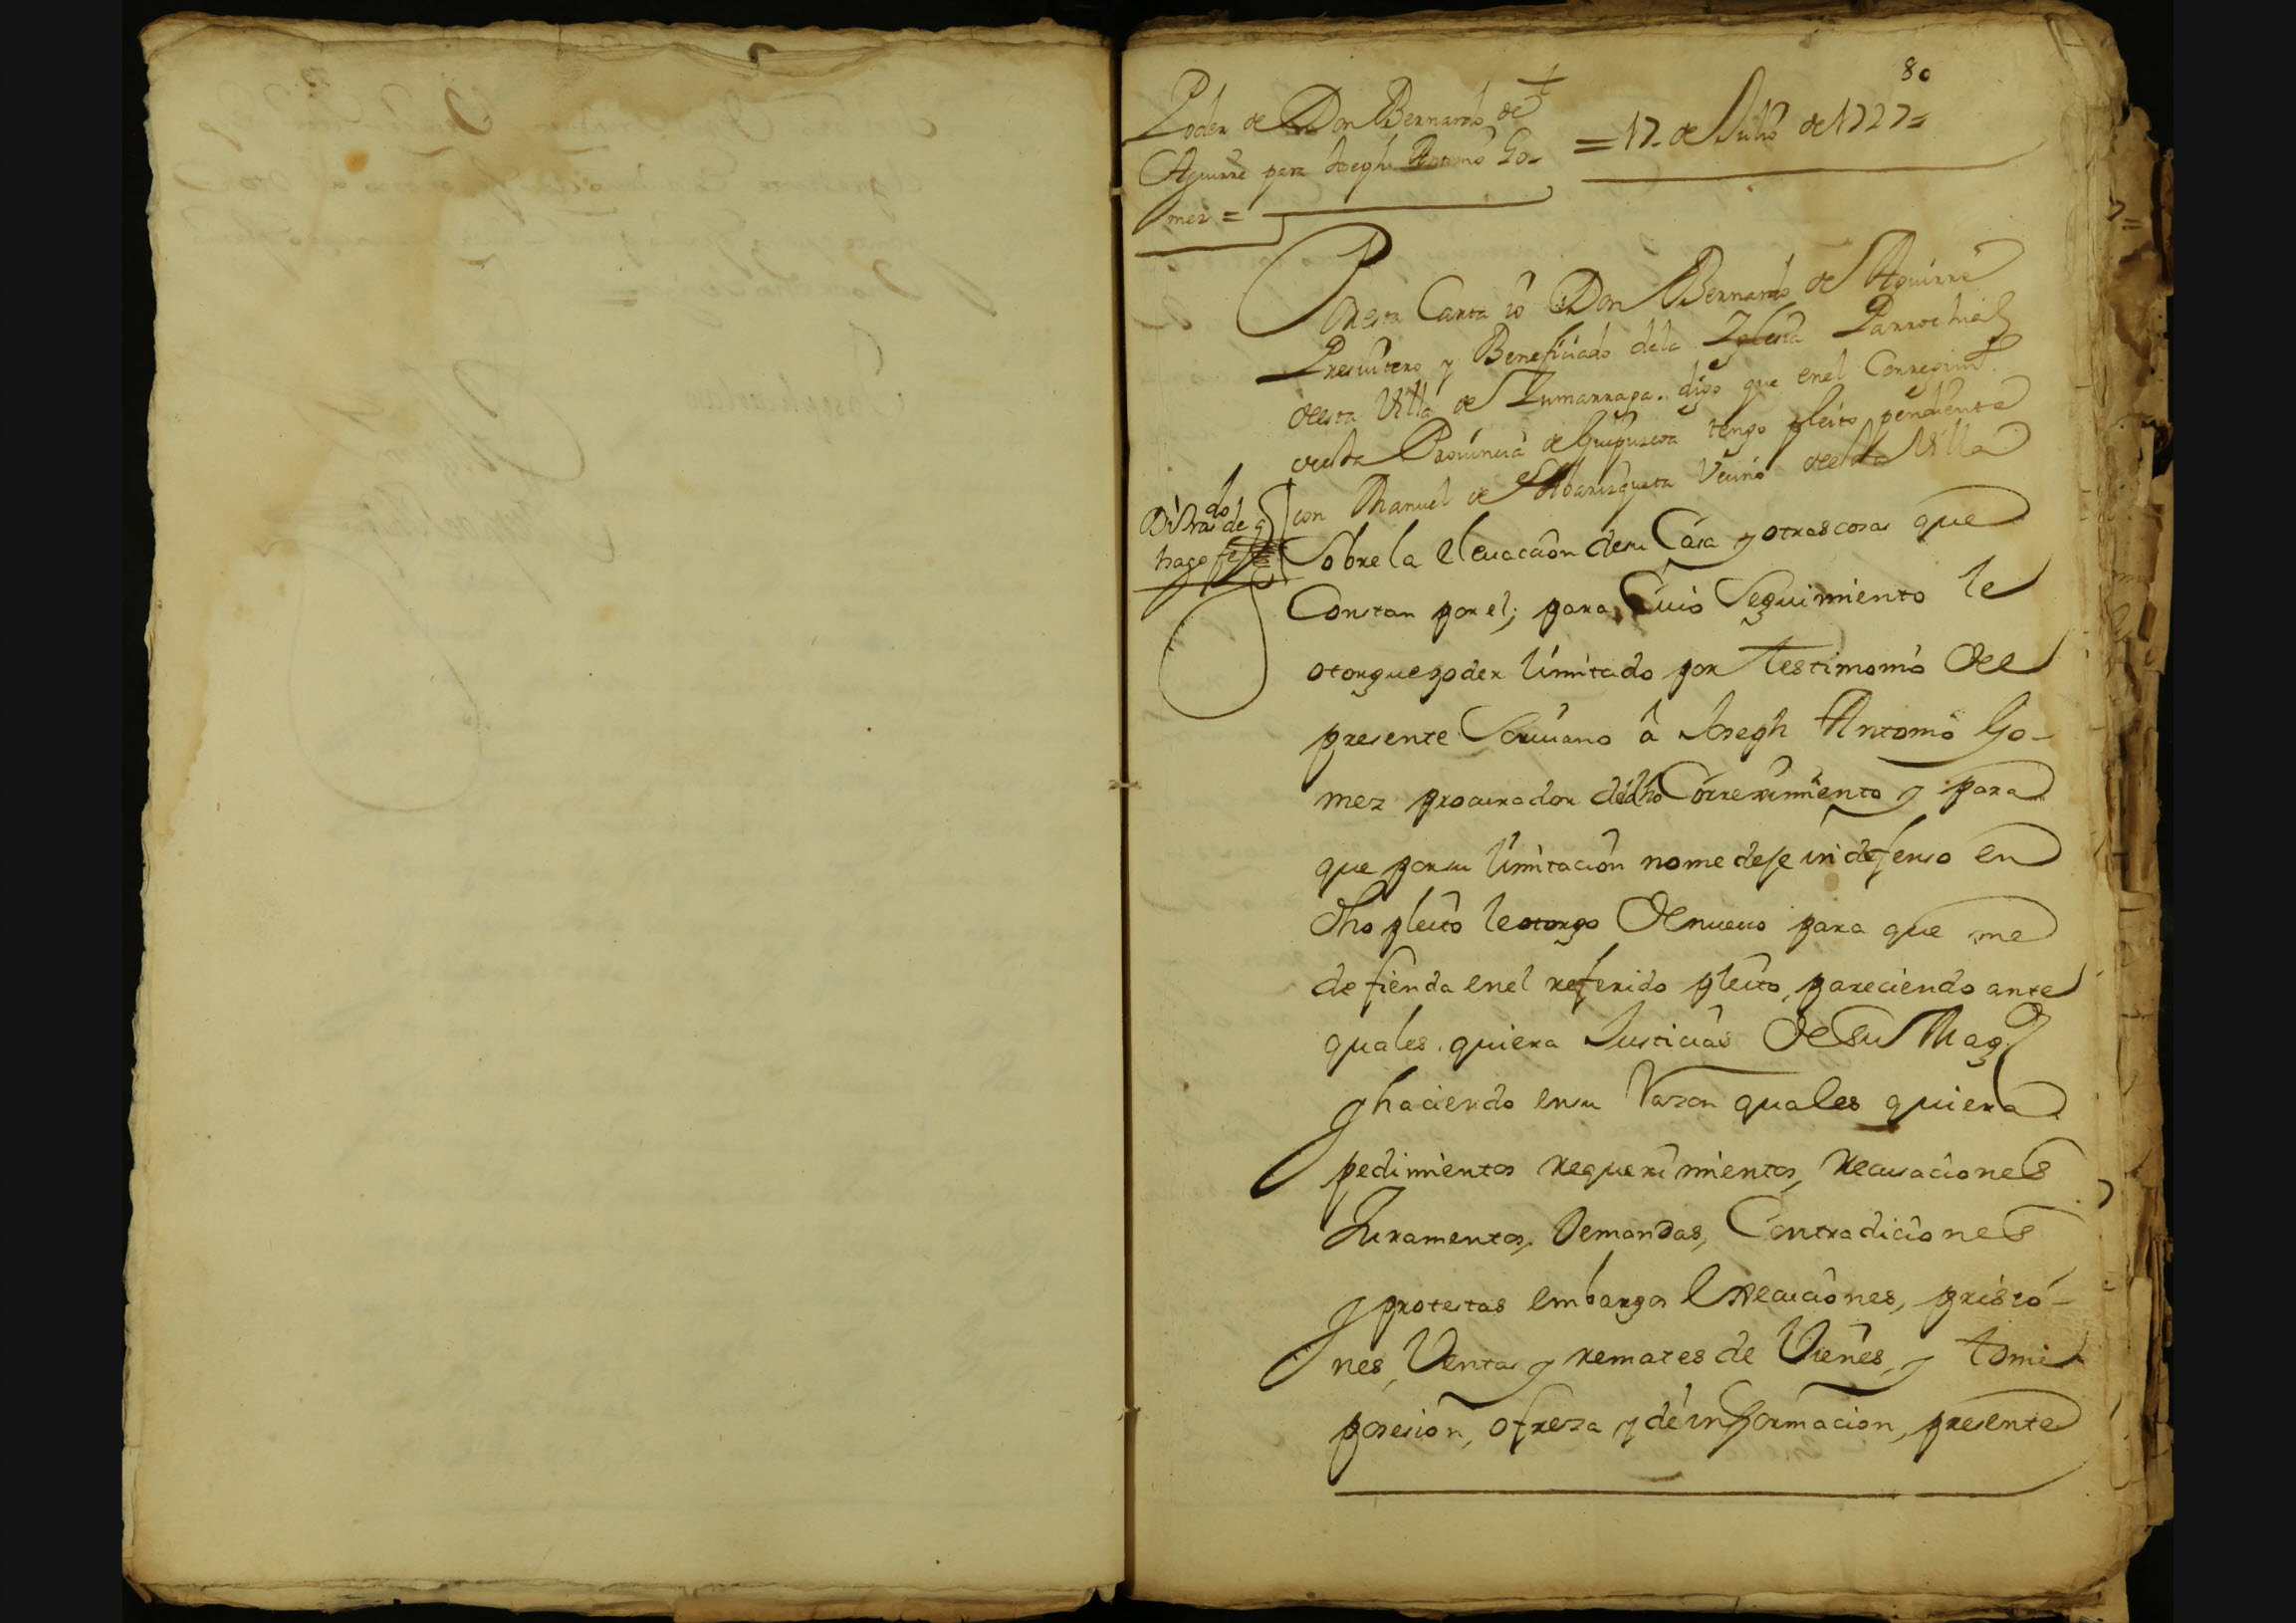 80
Poder de Don Bernardo de
Aguirre para Joseph Antonio Go-
mez =
= 17 de Julio de 1727 =
Por esta Carta io Don Bernardo de Aguirre
Presuitero y Beneficiado dela Iglesia Parrochial
desta Villa de Zumarraga. digo que enel Corregimto
desta Prouincia de Guipuzcoa tengo pleito pendiente
con Manuel de Abarizqueta Vecino desta Villa
Sobre la eleuacion desu Casa y otras cosas que
Constan por el; para Cuio Seguimiento le
otorgue poder limitado por testimonio del
presente Scriuano â Joseph Antonio Go-
mez procurador de dho Correximiento y para
que porsu limitacion nome deje indefenso en
dho pleito leotorgo Denueuo para que me
defienda enel referido pleito, pareciendo ante
quales quiera Justicias De Su Magd
y haciendo ensu Razon quales quiera
pedimientos requerimientos, recusaciones
Juramentos, Demandas, Contradiciones
y protestas embargos Execuciones, prisio-
nes, Ventas y remates de Vienes, y tome
posesion, ofresca y dé informacion, presente
do
hago fe